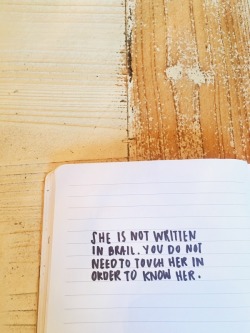 SHE IS NOT WRITTEN
IN BRAIL. YOU DO NOT
NEED TO TOUCH HER IN
ORDER TO KNOW HER.